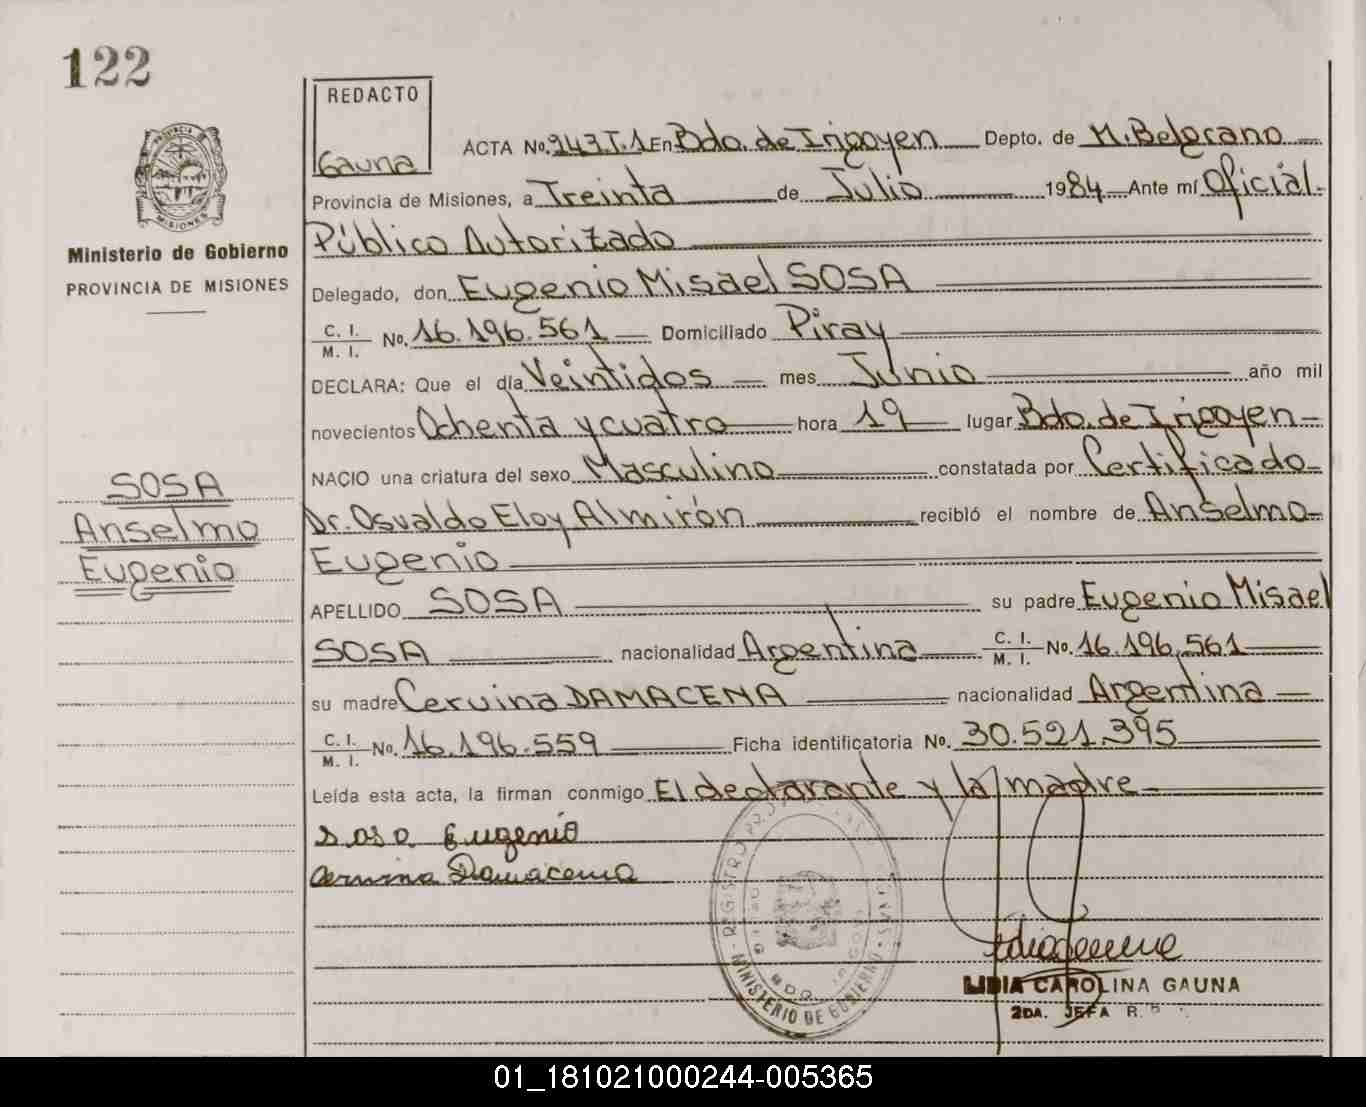 122
REDACTO
Gauna
PROVINCIA DE
MISIONES
Ministerio de Gobierno
PROVINCIA DE MISIONES
ACTA No. 243.T.1 En Bdo. de Irigoyen Depto. de M. Belgrano
Provincia de Misiones, a Treinta de Julio 1984 Ante mí Oficial
Público Autorizado
Delegado, don Eugenio Misael SOSA
C. I. M. I. No. 16.196.561 Domiciliado Piray
DECLARA: Que el día Veintidos mes Junio año mil
novecientos Ochenta y cuatro hora 19 lugar Bdo. de Irigoyen
NACIO una criatura del sexo Masculino constatada por Certificado
Dr. Osvaldo Eloy Almirón recibió el nombre de Anselmo
Eugenio
APELLIDO SOSA su padre Eugenio Misael
SOSA nacionalidad Argentina C. I. M. I. No. 16.196.561
su madre Cervina DAMACENA nacionalidad Argentina
C. I. M. I. No. 16.196.559 Ficha identificatoria No. 30.521.395
Leída esta acta, la firman conmigo El declarante y la madre
SOSA
Anselmo
Eugenio
Sosa Eugenio
Cervina Damacena
MINISTERIO DE GOBIERNO
LIDIA CAROLINA GAUNA
2DA. JEFA R.
01_181021000244-005365